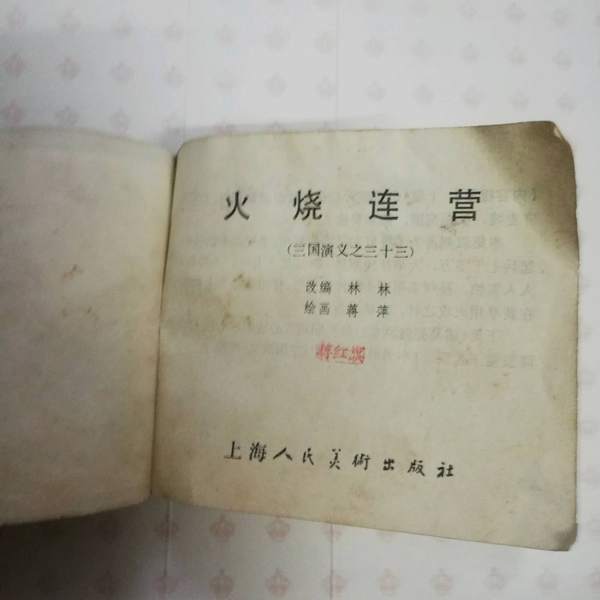 火烧连营
(三国演义之三十三)
改编 林林
绘画 蒋萍
上海人民美術出版社